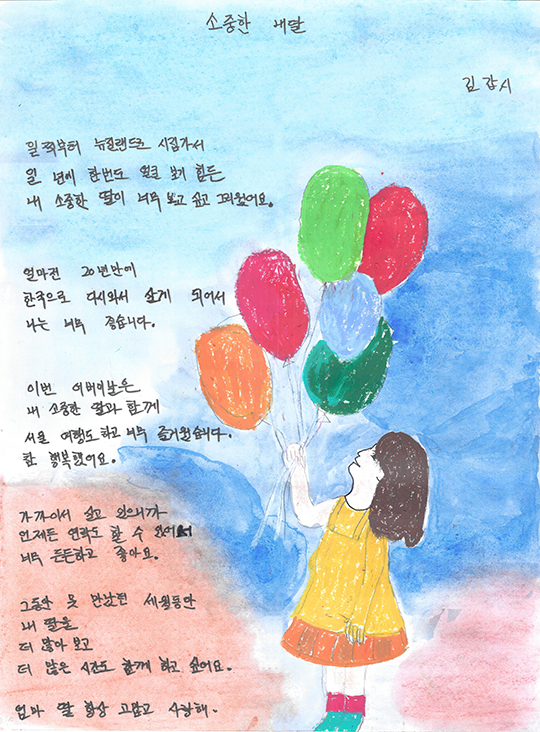 소중한 내딸
김갑시
일찍부터 뉴질랜드로 시집가서
일 년에 한번도 얼굴 보기 힘든
내 소중한 딸이 너무 보고 싶고 그리웠어요.
얼마전 20년만에
한국으로 다시와서 살게 되어서
나는 너무 좋습니다.
이번 어버이날은
내 소중한 딸과 함께
서울 여행도 하고 너무 즐거웠습니다.
참 행복했어요.
가까이서 살고 있으니까
언제든 연락도 할 수 있어서
너무 든든하고 좋아요.
그동안 못 만났던 세월동안
내 딸을
더 많아 보고
더 많은 시간도 함께 하고 싶어요.
엄마 딸 항상 고맙고 사랑해.